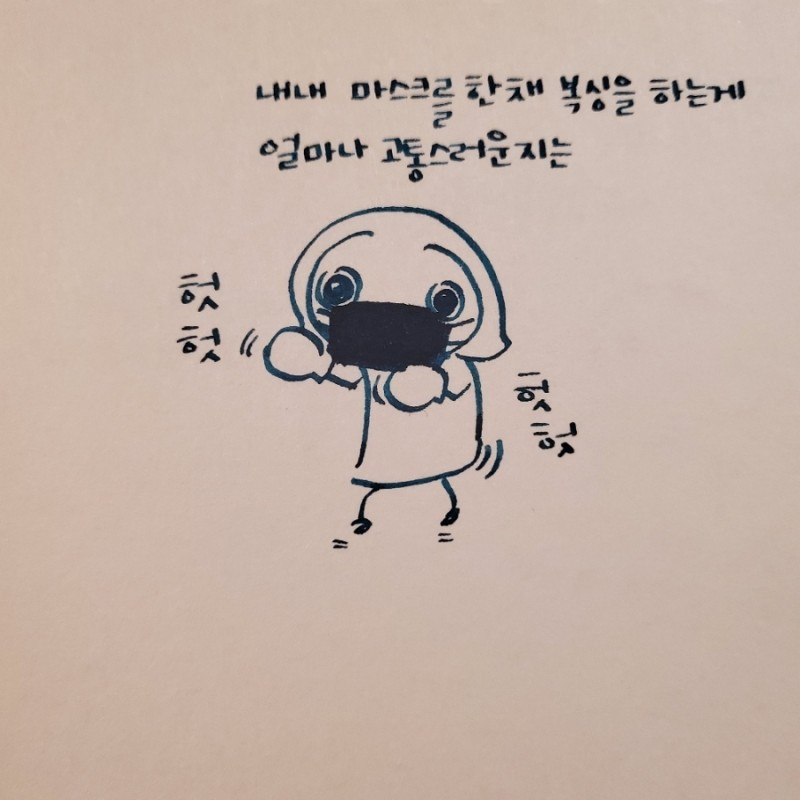 내내 마스크를 한채 복싱을 하는게
얼마나 고통스러운지는
헛
헛
헛
헛